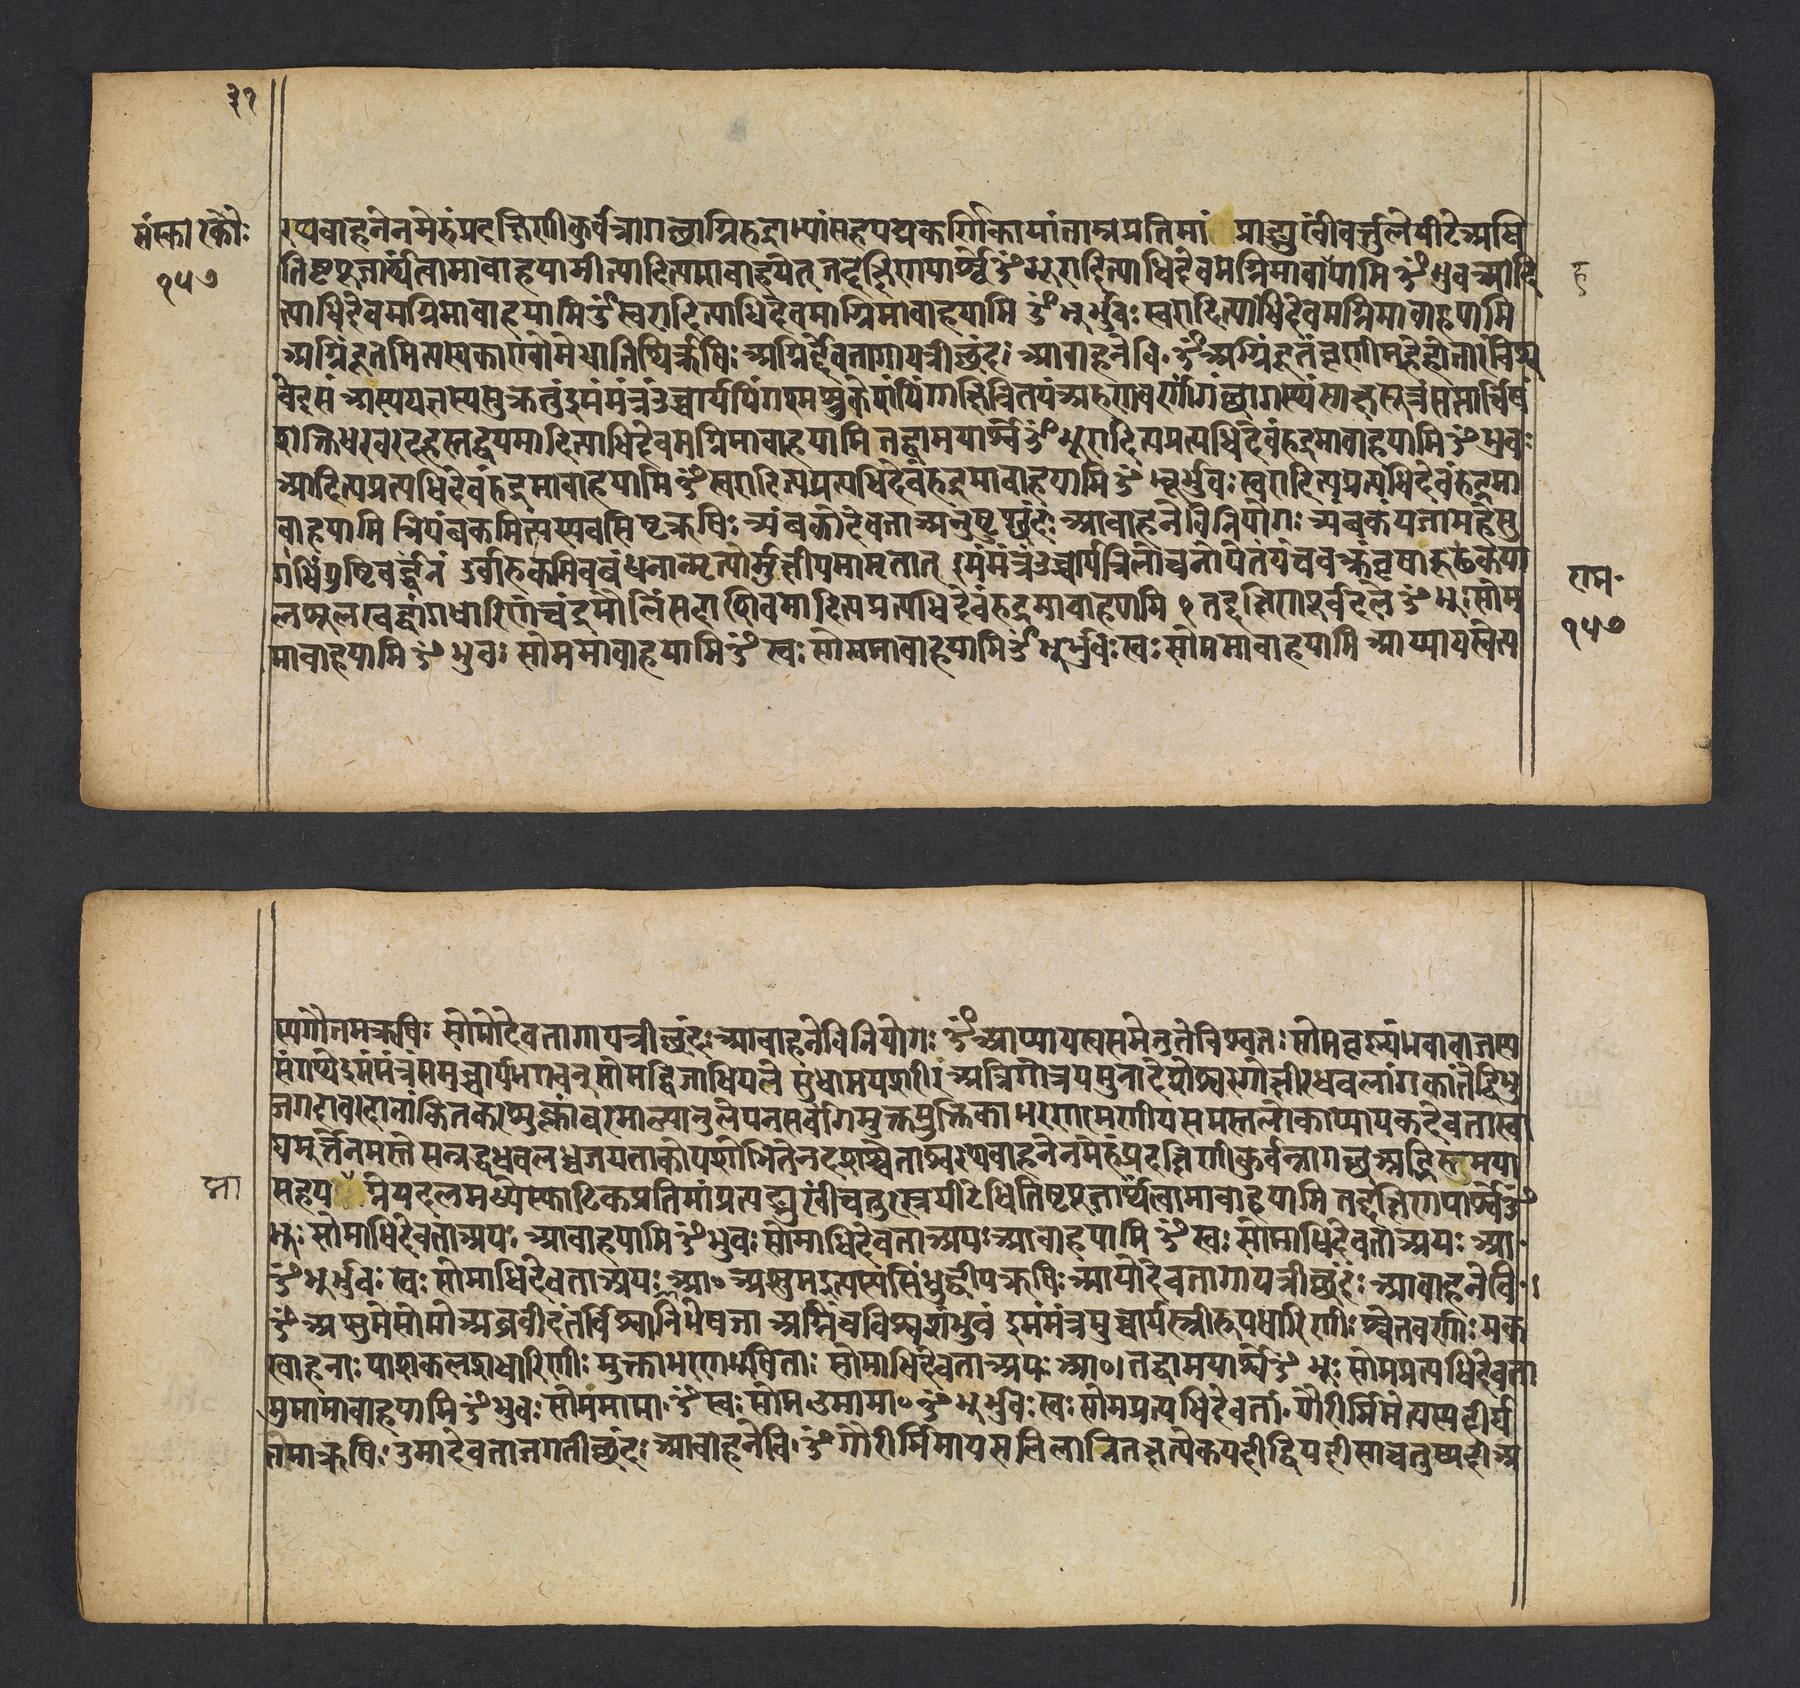 ३१
संस्का॰कौ॰
१५७
रथवाहनेनमेरुंप्रदक्षिणीकुर्वन्नागच्छाग्निरुद्राभ्यांसहपद्मकर्णिकायांताम्रप्रतिमां प्राङ्मुखींवर्त्तुलेपीठेअधि
तिष्टपूजार्थंत्वामावाहयामीत्यादित्यमावाहयेत् तद्दक्षिणपार्श्वेॐभूरादित्याधिदेवमग्निमावायामि ॐभुवआदि
ह
त्याधिदेवमग्निमावाहयामिॐस्वरादित्याधिदेवमाग्निमावाहयामि ॐभूर्भुवः स्वरादित्याधिदेवमग्निमावाहयामि
अग्निंदूतमितस्यकाण्वोमेधातिथिर्ऋषिः अग्निर्देवतागायत्रीछंदः आवाहनेवि॰ ॐअग्निंदूतंवृणीमहेहोतारंविश्व
वेदसं अस्ययज्ञस्यसुक्रतुं इमंमंत्रंउच्चार्यपिंगभ्रूश्मश्रुकेशंपिंगाक्षित्रितयंअरुणवर्णांगंछागस्थंसाक्षसूत्रंसप्तार्चिषं
शक्तिधरंवरदहस्तद्वयमादित्याधिदेवमग्निमावाहयामि तद्वामपार्श्वेॐभूरादित्यप्रत्यधिदेवंरुद्रमावाहयामिॐभुवः
आदित्यप्रत्यधिदेवंरुद्रमावाहयामिॐस्वरादित्यप्रत्यधिदेवंरुद्रमावाहयामिॐ भूर्भुवः स्वरादित्यप्रत्यधिदेवंरुद्रमा
वाहयामि त्रियंबकमित्यस्यवसिष्टऋषिः त्र्यंबकोदेवताअनुष्टुप्छंदः आवाहनेविनियोगः त्र्यंबकंयजामहेसु
गंधिंपुष्टिवर्द्धनं उर्वारुकमिवबंधनान्मृत्योर्मुक्षीयमामृतात् इमंमंत्रंउच्चार्यत्रिलोचनोपेतंपंचवक्त्रंवृषारूढंकपा
लशूलखट्वांगधारिणंचंद्रमौलिंसदाशिवमादित्यप्रत्यधिदेवंरुद्रमावाहयामि १ तद्दक्षिणपूर्वदले ॐ भूः सोम
मावाहयामिॐ भुवः सोममावाहयामिॐ स्वः सोममावाहयामिॐ भूर्भुवः स्वः सोममावाहयामि आप्यायस्वेत्य
राम॰
१५७
स्यगौतमऋषिः सोमोदेवतागायत्रीछंदः आवाहनेविनियोगः ॐआप्यायस्वसमेतुतेविश्वतः सोमवृष्ण्यंभवावाजस्य
संगथे इमंमंत्रंसमुच्चार्यभगवन् सोमद्विजाधिपते सुधामयशरीर अत्रिगोत्रयमुनादेशोद्भवगोक्षीरधवलांगकांतेद्विभु
जगदावरदानांकितकरशुक्लांबरमाल्यानुलेपनसर्वांगमुक्तमुक्तिकाभरणरमणीयसमस्तलोकाप्यायकदेवतास्वा
द्यमूर्तेनमस्ते सन्नद्धधवलध्वजपताकोपशोभितेनदशश्वेताश्वरथवाहनेनमेरुंप्रदक्षिणीकुर्वन्नागच्छअद्भिरुमया
सहपद्माग्नेयदलमध्येस्फाटिकप्रतिमांप्रत्यङ्मुखींचतुरस्रपीठेधितिष्टपूजार्थंत्वामावाहयामि तद्दक्षिणपार्श्वेॐ
भूः सोमाधिदेवताअपः आवाहयामिॐभुवः सोमाधिदेवताअपःआवाहयामि ॐ स्वः सोमाधिदेवताअपः आ॰
ॐभूर्भुवः स्वः सोमाधिदेवताअपः आ॰ अप्सुमइत्यस्यसिंधुद्वीपऋषिः आपोदेवतागायत्रीछंदः आवाहनेवि॰
ॐ अप्सुमेसोमोअब्रवीदंतर्विश्वानिभेषजा अग्निंचविश्वशंभुवं इमंमंत्रमुच्चार्यस्त्रीरूपधारिणीः श्वेतवर्णाः मक
रवाहनाः पाशकलशधारिणीः मुक्ताभरणभूषिताः सोमाधिदेवताअपः आ॰ तद्वामपार्श्वेॐ भूः सोमप्रत्यधिदेवता
मुमामावाहयामिॐभुवः सोममामा॰ ॐ स्वः सोमउमामा॰ ॐ भूर्भुवः स्वः सोमप्रत्यधिदेवतां॰ गौरीर्मिमेत्यस्यदीर्घ
तमाऋषिः उमादेवताजगतीछंदः आवाहनेवि॰ ॐगौरीर्मिमायसलिलानितक्षत्येकपदीद्विपदीसाचतुष्पदीअ